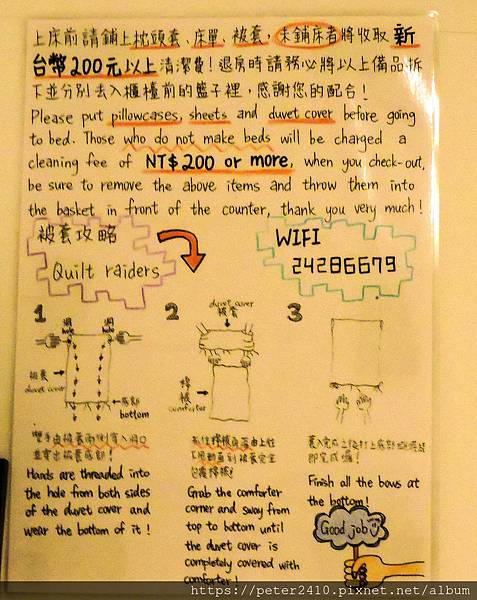 上床前請鋪上枕頭套、床單、被套，未鋪床者將收取 新
台幣200元以上清潔費！退房時請務必將以上備品拆
下並分別丟入櫃檯前的籃子裡，感謝您的配合！
Please put pillowcases, sheets and duvet cover before going
to bed. Those who do not make beds will be charged a
cleaning fee of NT$200 or more, when you check-out,
be sure to remove the above items and throw them into
the basket in front of the counter, thank you very much!
被套攻略
Quilt raiders
WIFI
24286679
1
hole
hole
被套
duvet cover
底部
bottom
2
duvet cover
被套
棉被
comforter
3
雙手由被套兩側穿入洞口
並穿出被套底部！
Hands are threaded into
the hole from both sides
of the duvet cover and
wear the bottom of it!
抓住棉被角落由上往
下甩動直到被套完全
包覆棉被！
Grab the comforter
corner and sway from
top to bottom until
the duvet cover is
completely covered with
comforter!
即完成囉！
Finish all the bows at
the bottom!
Good job
https://peter2410.pixnet.net/album